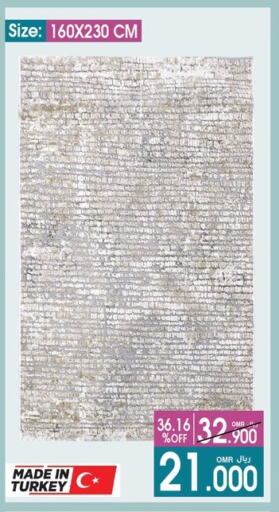 Size: 160X230 CM
36.16 %OFF
OMR ريال
32.900
OMR ريال
21.000
MADE IN
TURKEY